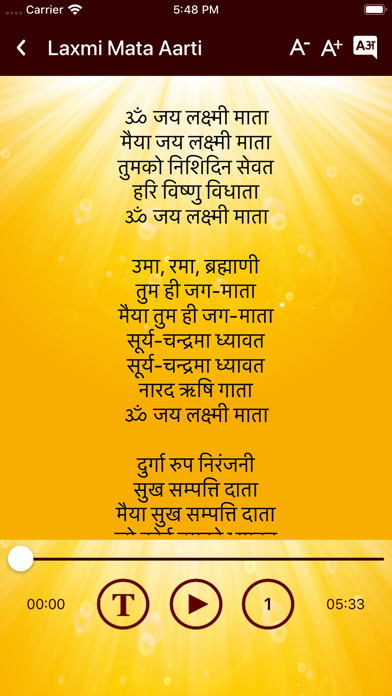 Carrier 5:48 PM
Laxmi Mata Aarti A- A+ Aअ
ॐ जय लक्ष्मी माता
मैया जय लक्ष्मी माता
तुमको निशिदिन सेवत
हरि विष्णु विधाता
ॐ जय लक्ष्मी माता
उमा, रमा, ब्रह्माणी
तुम ही जग-माता
मैया तुम ही जग-माता
सूर्य-चन्द्रमा ध्यावत
सूर्य-चन्द्रमा ध्यावत
नारद ऋषि गाता
ॐ जय लक्ष्मी माता
दुर्गा रुप निरंजनी
सुख सम्पत्ति दाता
मैया सुख सम्पत्ति दाता
00:00 T 1 05:33